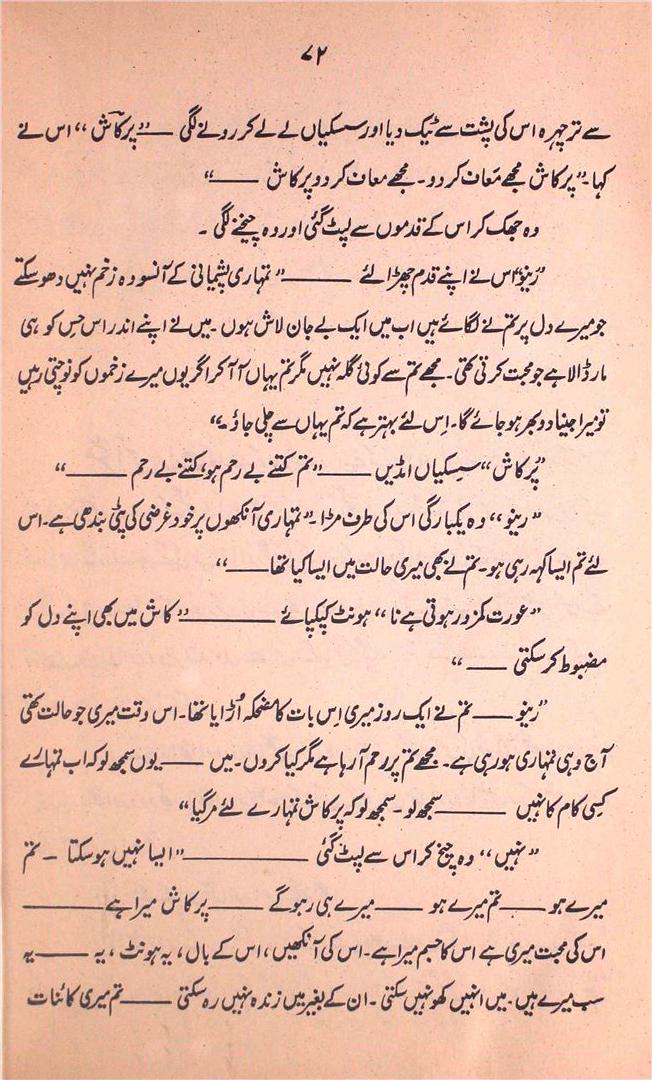 ۷۲
سے تر چہرہ اس کی پشت سے ٹیک دیا اور سسکیاں لے لے کر رونے لگی —— ”پرکاش“ اس نے
کہا۔ ”پرکاش مجھے معاف کر دو۔ مجھے معاف کر دو پرکاش ——“
وہ جھک کر اس کے قدموں سے لپٹ گئی اور وہ چیخنے لگی ۔
”رینو“ اس نے اپنے قدم چھڑائے —— ”تمہاری پشیمانی کے آنسو وہ زخم نہیں دھو سکتے
جو میرے دل پر تم نے لگائے ہیں اب میں ایک بے جان لاش ہوں ۔ میں نے اپنے اندر اس حِس کو ہی
مار ڈالا ہے جو محبت کرتی تھی۔ مجھے تم سے کوئی گلہ نہیں مگر تم یہاں آ آ کر اگر یوں میرے زخموں کو نوچتی رہیں
تو میرا جینا دوبھر ہو جائے گا۔ اِس لئے بہتر ہے کہ تم یہاں سے چلی جاؤ۔“
”پرکاش“ سسکیاں امڈیں —— ”تم کتنے بے رحم ہو، کتنے بے رحم ——“
”رینو“ وہ یکبارگی اس کی طرف مڑا۔ ”تمہاری آنکھوں پر خود غرضی کی پٹی بندھی ہے۔ اس
لئے تم ایسا کہہ رہی ہو۔ تم نے بھی میری حالت میں ایسا کیا تھا ——“
”عورت کمزور ہوتی ہے نا“ ہونٹ کپکپائے —— ”کاش میں بھی اپنے دل کو
مضبوط کر سکتی ——“
”رینو —— تم نے ایک روز میری اِس بات کا مضحکہ اُڑایا تھا۔ اس وقت میری جو حالت تھی
آج وہی تمہاری ہو رہی ہے۔ مجھے تم پر رحم آ رہا ہے مگر کیا کروں۔ میں —— یوں سمجھ لو کہ اب تمہارے
کسی کام کا نہیں —— سمجھ لو۔ سمجھ لو کہ پرکاش تمہارے لئے مر گیا“
”نہیں“ وہ چیخ کر اس سے لپٹ گئی —— ”ایسا نہیں ہو سکتا ۔ تم
میرے ہو —— تم میرے ہو —— میرے ہی رہو گے —— پرکاش میرا ہے ——
اس کی محبت میری ہے اس کا جسم میرا ہے۔ اس کی آنکھیں، اس کے بال، یہ ہونٹ، یہ —— یہ
سب میرے ہیں۔ میں انہیں کھو نہیں سکتی ۔ ان کے بغیر میں زندہ نہیں رہ سکتی —— تم میری کائنات